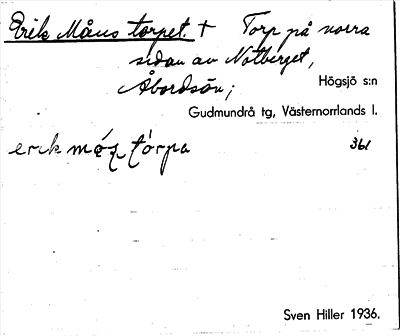 Erik Måns torpet. † Torp på norra
sidan av Notberget,
Åbordsön; Högsjö s:n
Gudmundrå tg, Västernorrlands l.
erik tórpa 361
Sven Hiller 1936.